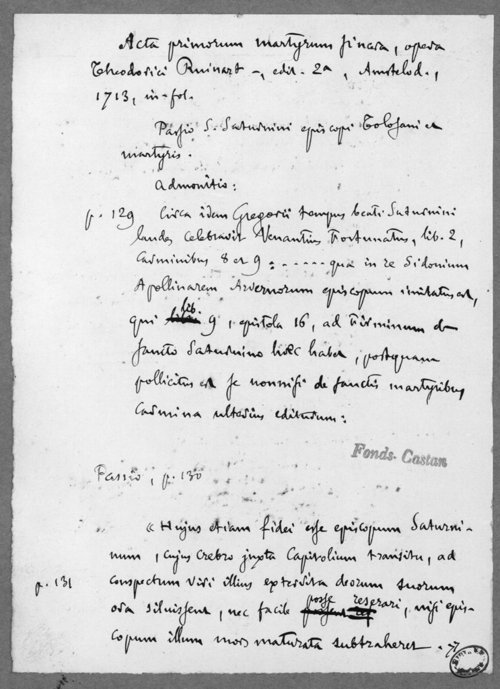 Acta primorum martyrum sincera, opera
Theodorici Ruinart -, edit. 2a, Amstelod.,
1713, in-fol.
Passio S. Saturnini episcopi Tolosani et
martyris.
Admonitio:
p. 129 Circa idem Gregorii tempus beati Saturnini
laudes celebravit Venantius Fortunatus, lib. 2,
Carminibus 8 et 9 : ------ qua in re Sidonium
Apollinarem Arvernorum episcopum imitatus est,
qui lib. 9, epistola 16, ad Firminum de
sancto Saturnino hæc habet, postquam
pollicitus est se nonnisi de sanctis martyribus
Carmina ulterius editurum :
Fonds Castan
Passio, p. 130
« Hujus etiam fidei esse episcopum Saturni-
num, cujus crebro juxta Capitolium transitu, ad
p. 131 conspectum viri illius exterrita deorum suorum
ora siluissent, nec facile posse reserari, nisi epis-
copum illum mors maturata subtraheret. »